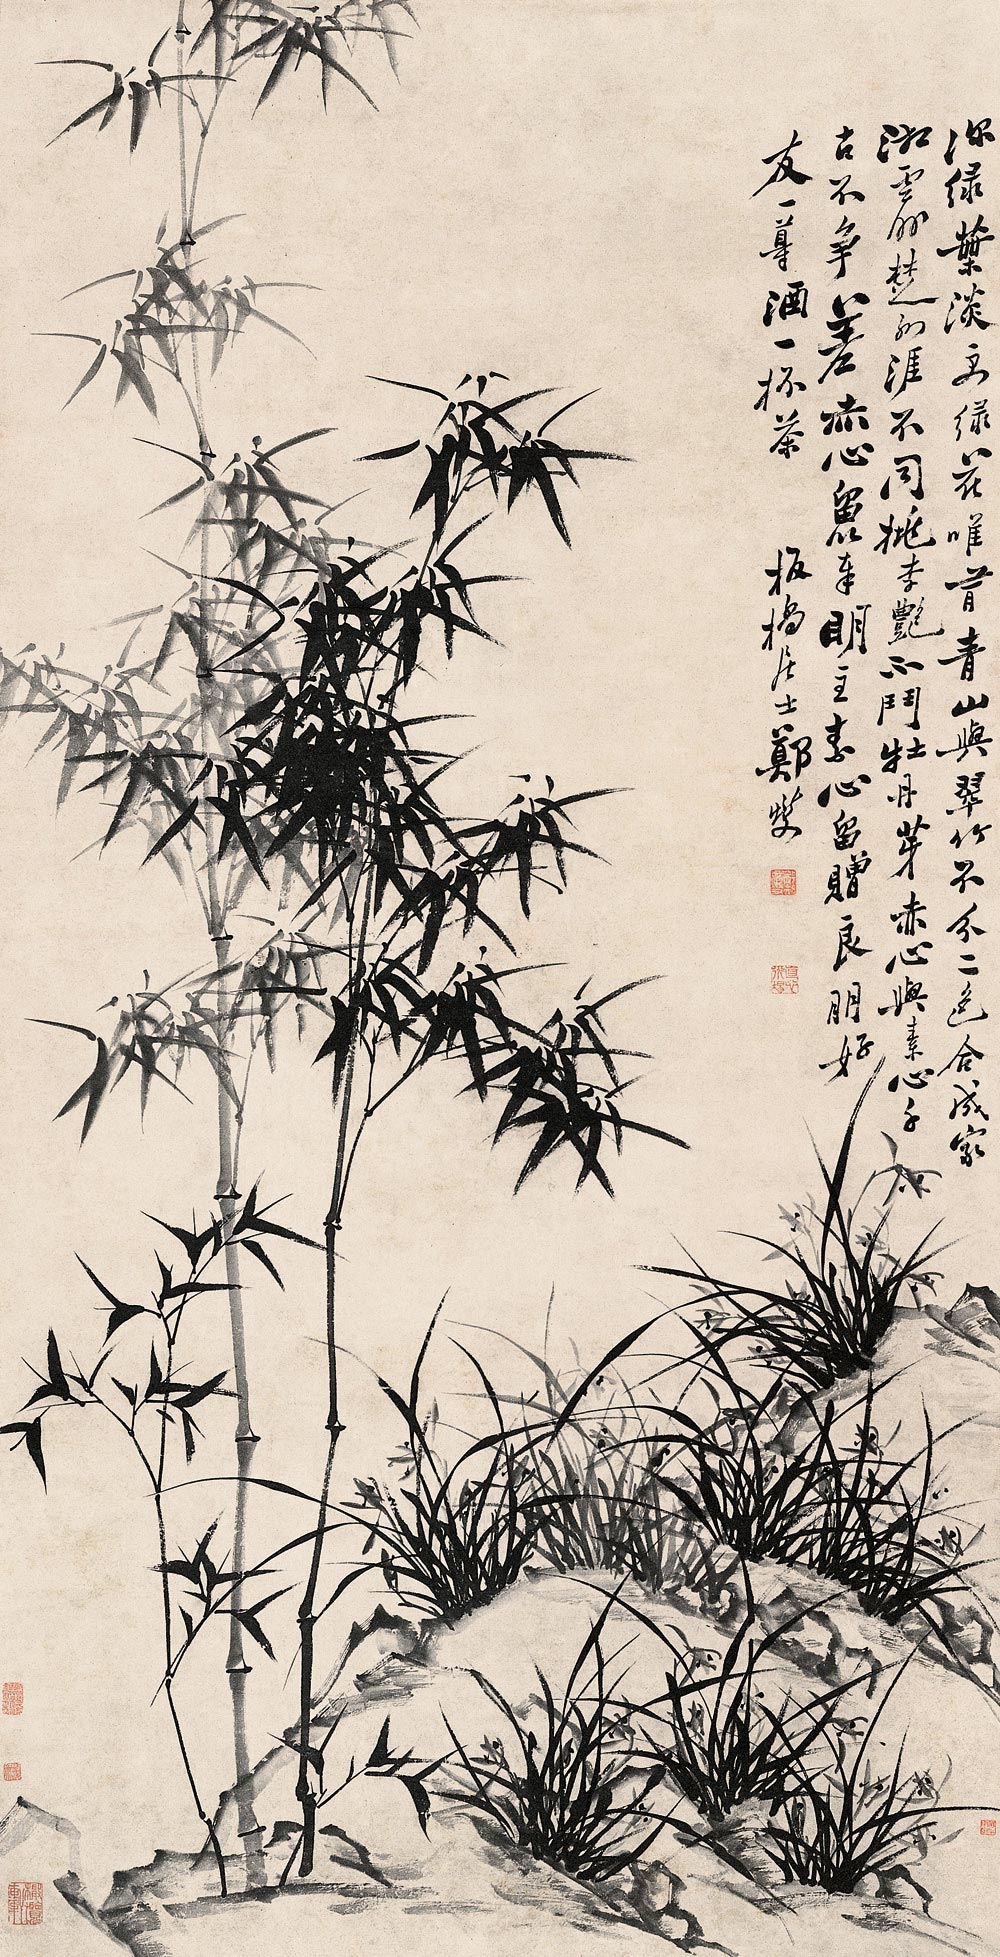 深綠葉淡更綠花唯昔青山與翠竹不分二色合成家
湘雲外楚水涯不同桃李艷不鬥牡丹芽赤心與素心千
古不爭差赤心留奉明主素心留贈良朋好
友一尊酒一杯茶
板橋居士鄭燮